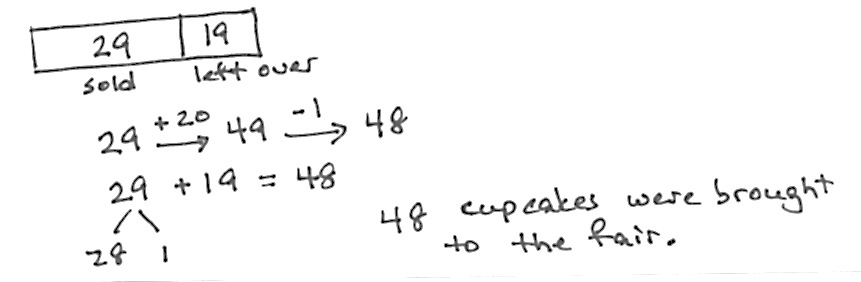 29 19
sold left over
29 +20 → 49 -1 → 48
29 + 19 = 48
28 1
48 cupcakes were brought
to the fair.